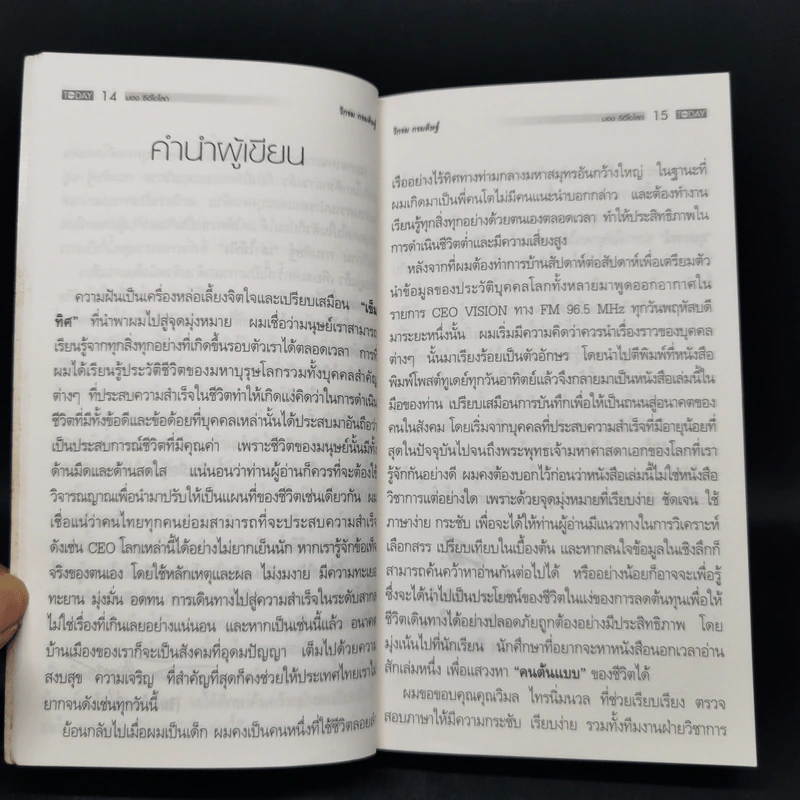 TODAY 14 มอง ซีอีโอโลก
วิกรม กรมดิษฐ์
คำนำผู้เขียน
ความฝันเป็นเครื่องหล่อเลี้ยงจิตใจและเปรียบเสมือน "เข็ม
ทิศ" ที่นำพาผมไปสู่จุดมุ่งหมาย ผมเชื่อว่ามนุษย์เราสามารถ
เรียนรู้จากทุกสิ่งทุกอย่างที่เกิดขึ้นรอบตัวเราได้ตลอดเวลา การที่
ผมได้เรียนรู้ประวัติชีวิตของมหาบุรุษโลกรวมทั้งบุคคลสำคัญ
ต่างๆ ที่ประสบความสำเร็จในชีวิตทำให้เกิดแง่คิดว่าในการดำเนิน
ชีวิตที่มีทั้งข้อดีและข้อด้อยที่บุคคลเหล่านั้นได้ประสบมาอันถือว่า
เป็นประสบการณ์ชีวิตที่มีคุณค่า เพราะชีวิตของมนุษย์นั้นมีทั้ง
ด้านมืดและด้านสดใส แน่นอนว่าท่านผู้อ่านก็ควรที่จะต้องใช้
วิจารณญาณเพื่อนำมาปรับให้เป็นแผนที่ของชีวิตเช่นเดียวกัน ผม
เชื่อแน่ว่าคนไทยทุกคนย่อมสามารถที่จะประสบความสำเร็จ
ดังเช่น CEO โลกเหล่านี้ได้อย่างไม่ยากเย็นนัก หากเรารู้จักข้อเท็จ
จริงของตนเอง โดยใช้หลักเหตุและผล ไม่งมงาย มีความทะเยอ
ทะยาน มุ่งมั่น อดทน การเดินทางไปสู่ความสำเร็จในระดับสากล
ไม่ใช่เรื่องที่เกินเลยอย่างแน่นอน และหากเป็นเช่นนี้แล้ว อนาคต
บ้านเมืองของเราก็จะเป็นสังคมที่อุดมปัญญา เต็มไปด้วยความ
สงบสุข ความเจริญ ที่สำคัญที่สุดก็คงช่วยให้ประเทศไทยเราไม่
ยากจนดังเช่นทุกวันนี้
ย้อนกลับไปเมื่อผมเป็นเด็ก ผมคงเป็นคนหนึ่งที่ใช้ชีวิตลอยลำ
วิกรม กรมดิษฐ์
มอง ซีอีโอโลก 15 TODAY
เรืออย่างไร้ทิศทางท่ามกลางมหาสมุทรอันกว้างใหญ่ ในฐานะที่
ผมเกิดมาเป็นพี่คนโตไม่มีคนแนะนำบอกกล่าว และต้องทำงาน
เรียนรู้ทุกสิ่งทุกอย่างด้วยตนเองตลอดเวลา ทำให้ประสิทธิภาพใน
การดำเนินชีวิตต่ำและมีความเสี่ยงสูง
หลังจากที่ผมต้องทำการบ้านสัปดาห์ต่อสัปดาห์เพื่อเตรียมตัว
นำข้อมูลของประวัติบุคคลโลกทั้งหลายมาพูดออกอากาศใน
รายการ CEO VISION ทาง FM 96.5 MHz ทุกวันพฤหัสบดี
มาระยะหนึ่งนั้น ผมเริ่มมีความคิดว่าควรนำเรื่องราวของบุคคล
ต่างๆ นั้นมาเรียงร้อยเป็นตัวอักษร โดยนำไปตีพิมพ์ที่หนังสือ
พิมพ์โพสต์ทูเดย์ทุกวันอาทิตย์แล้วจึงกลายมาเป็นหนังสือเล่มนี้ใน
มือของท่าน เปรียบเสมือนการบันทึกเพื่อให้เป็นถนนสู่อนาคตของ
คนในสังคม โดยเริ่มจากบุคคลที่ประสบความสำเร็จที่มีอายุน้อยที่
สุดในปัจจุบันไปจนถึงพระพุทธเจ้ามหาศาสดาเอกของโลกที่เรา
รู้จักกันอย่างดี ผมคงต้องบอกไว้ก่อนว่าหนังสือเล่มนี้ไม่ใช่หนังสือ
วิชาการแต่อย่างใด เพราะด้วยจุดมุ่งหมายที่เรียบง่าย ชัดเจน ใช้
ภาษาง่าย กระชับ เพื่อจะได้ให้ท่านผู้อ่านมีแนวทางในการวิเคราะห์
เลือกสรร เปรียบเทียบในเบื้องต้น และหากสนใจข้อมูลในเชิงลึกก็
สามารถค้นคว้าหาอ่านกันต่อไปได้ หรืออย่างน้อยก็อาจจะเพื่อรู้
ซึ่งจะได้นำไปเป็นประโยชน์ของชีวิตในแง่ของการลดต้นทุนเพื่อให้
ชีวิตเดินทางได้อย่างปลอดภัยถูกต้องอย่างมีประสิทธิภาพ โดย
มุ่งเน้นไปที่นักเรียน นักศึกษาที่อยากจะหาหนังสือนอกเวลาอ่าน
สักเล่มหนึ่ง เพื่อแสวงหา "คนต้นแบบ" ของชีวิตได้
ผมขอขอบคุณคุณวิมล ไทรนิ่มนวล ที่ช่วยเรียบเรียง ตรวจ
สอบภาษาให้มีความกระชับ เรียบง่าย รวมทั้งทีมงานฝ่ายวิชาการ